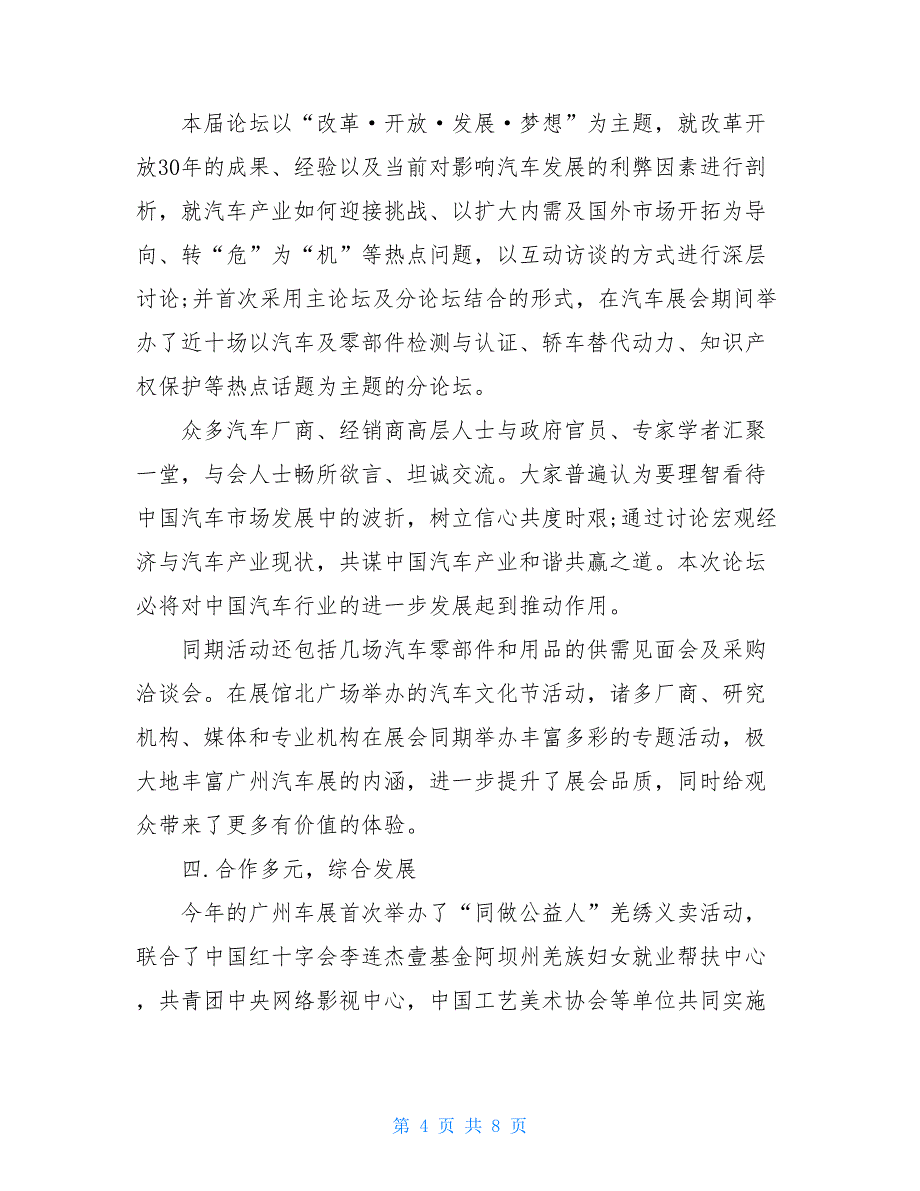 本届论坛以“改革·开放·发展·梦想”为主题，就改革开
放30年的成果、经验以及当前对影响汽车发展的利弊因素进行剖
析，就汽车产业如何迎接挑战、以扩大内需及国外市场开拓为导
向、转“危”为“机”等热点问题，以互动访谈的方式进行深层
讨论;并首次采用主论坛及分论坛结合的形式，在汽车展会期间举
办了近十场以汽车及零部件检测与认证、轿车替代动力、知识产
权保护等热点话题为主题的分论坛。
众多汽车厂商、经销商高层人士与政府官员、专家学者汇聚
一堂，与会人士畅所欲言、坦诚交流。大家普遍认为要理智看待
中国汽车市场发展中的波折，树立信心共度时艰;通过讨论宏观经
济与汽车产业现状，共谋中国汽车产业和谐共赢之道。本次论坛
必将对中国汽车行业的进一步发展起到推动作用。
同期活动还包括几场汽车零部件和用品的供需见面会及采购
洽谈会。在展馆北广场举办的汽车文化节活动，诸多厂商、研究
机构、媒体和专业机构在展会同期举办丰富多彩的专题活动，极
大地丰富广州汽车展的内涵，进一步提升了展会品质，同时给观
众带来了更多有价值的体验。
四.合作多元，综合发展
今年的广州车展首次举办了“同做公益人”羌绣义卖活动，
联合了中国红十字会李连杰壹基金阿坝州羌族妇女就业帮扶中心
，共青团中央网络影视中心，中国工艺美术协会等单位共同实施
第 4 页 共 8 页